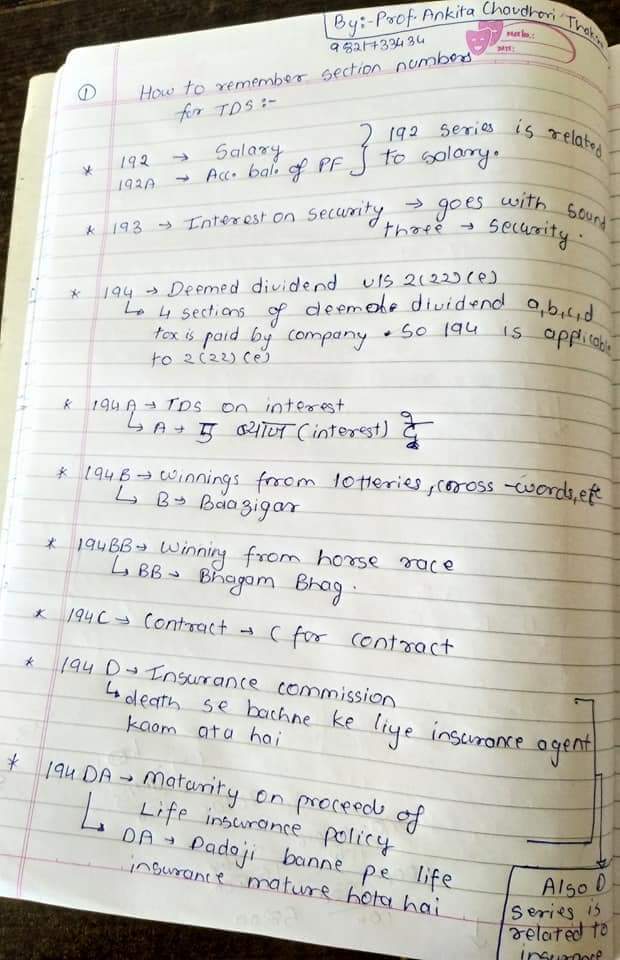 By:- Prof. Ankita Choudhari Thakur
9321733434
① How to remember section numbers
for TDS :-
* 192 → Salary } 192 series is related
192A → Acc. bal. of PF } to salary.
* 193 → Interest on security → goes with sound
three → security.
* 194 → Deemed dividend U/S 2(22)(e)
↳ 4 sections of deemde dividend a,b,c,d
tax is paid by company . So 194 is applicable
to 2(22)(e)
* 194A → TDS on interest
↳ A → ब्याज (interest)
* 194B → winnings from lotteries, cross-words, etc
↳ B → Baazigar
* 194BB → winning from horse race
↳ BB → Bhagam Bhag.
* 194C → Contract → C for contract
* 194 D → Insurance commission
↳ death se bachne ke liye insurance agent
kaam ata hai
* 194 DA → Maturity on proceeds of
Life insurance policy
↳ DA → Dadaji banne pe life
insurance mature hota hai
Also D
series is
related to
insurance